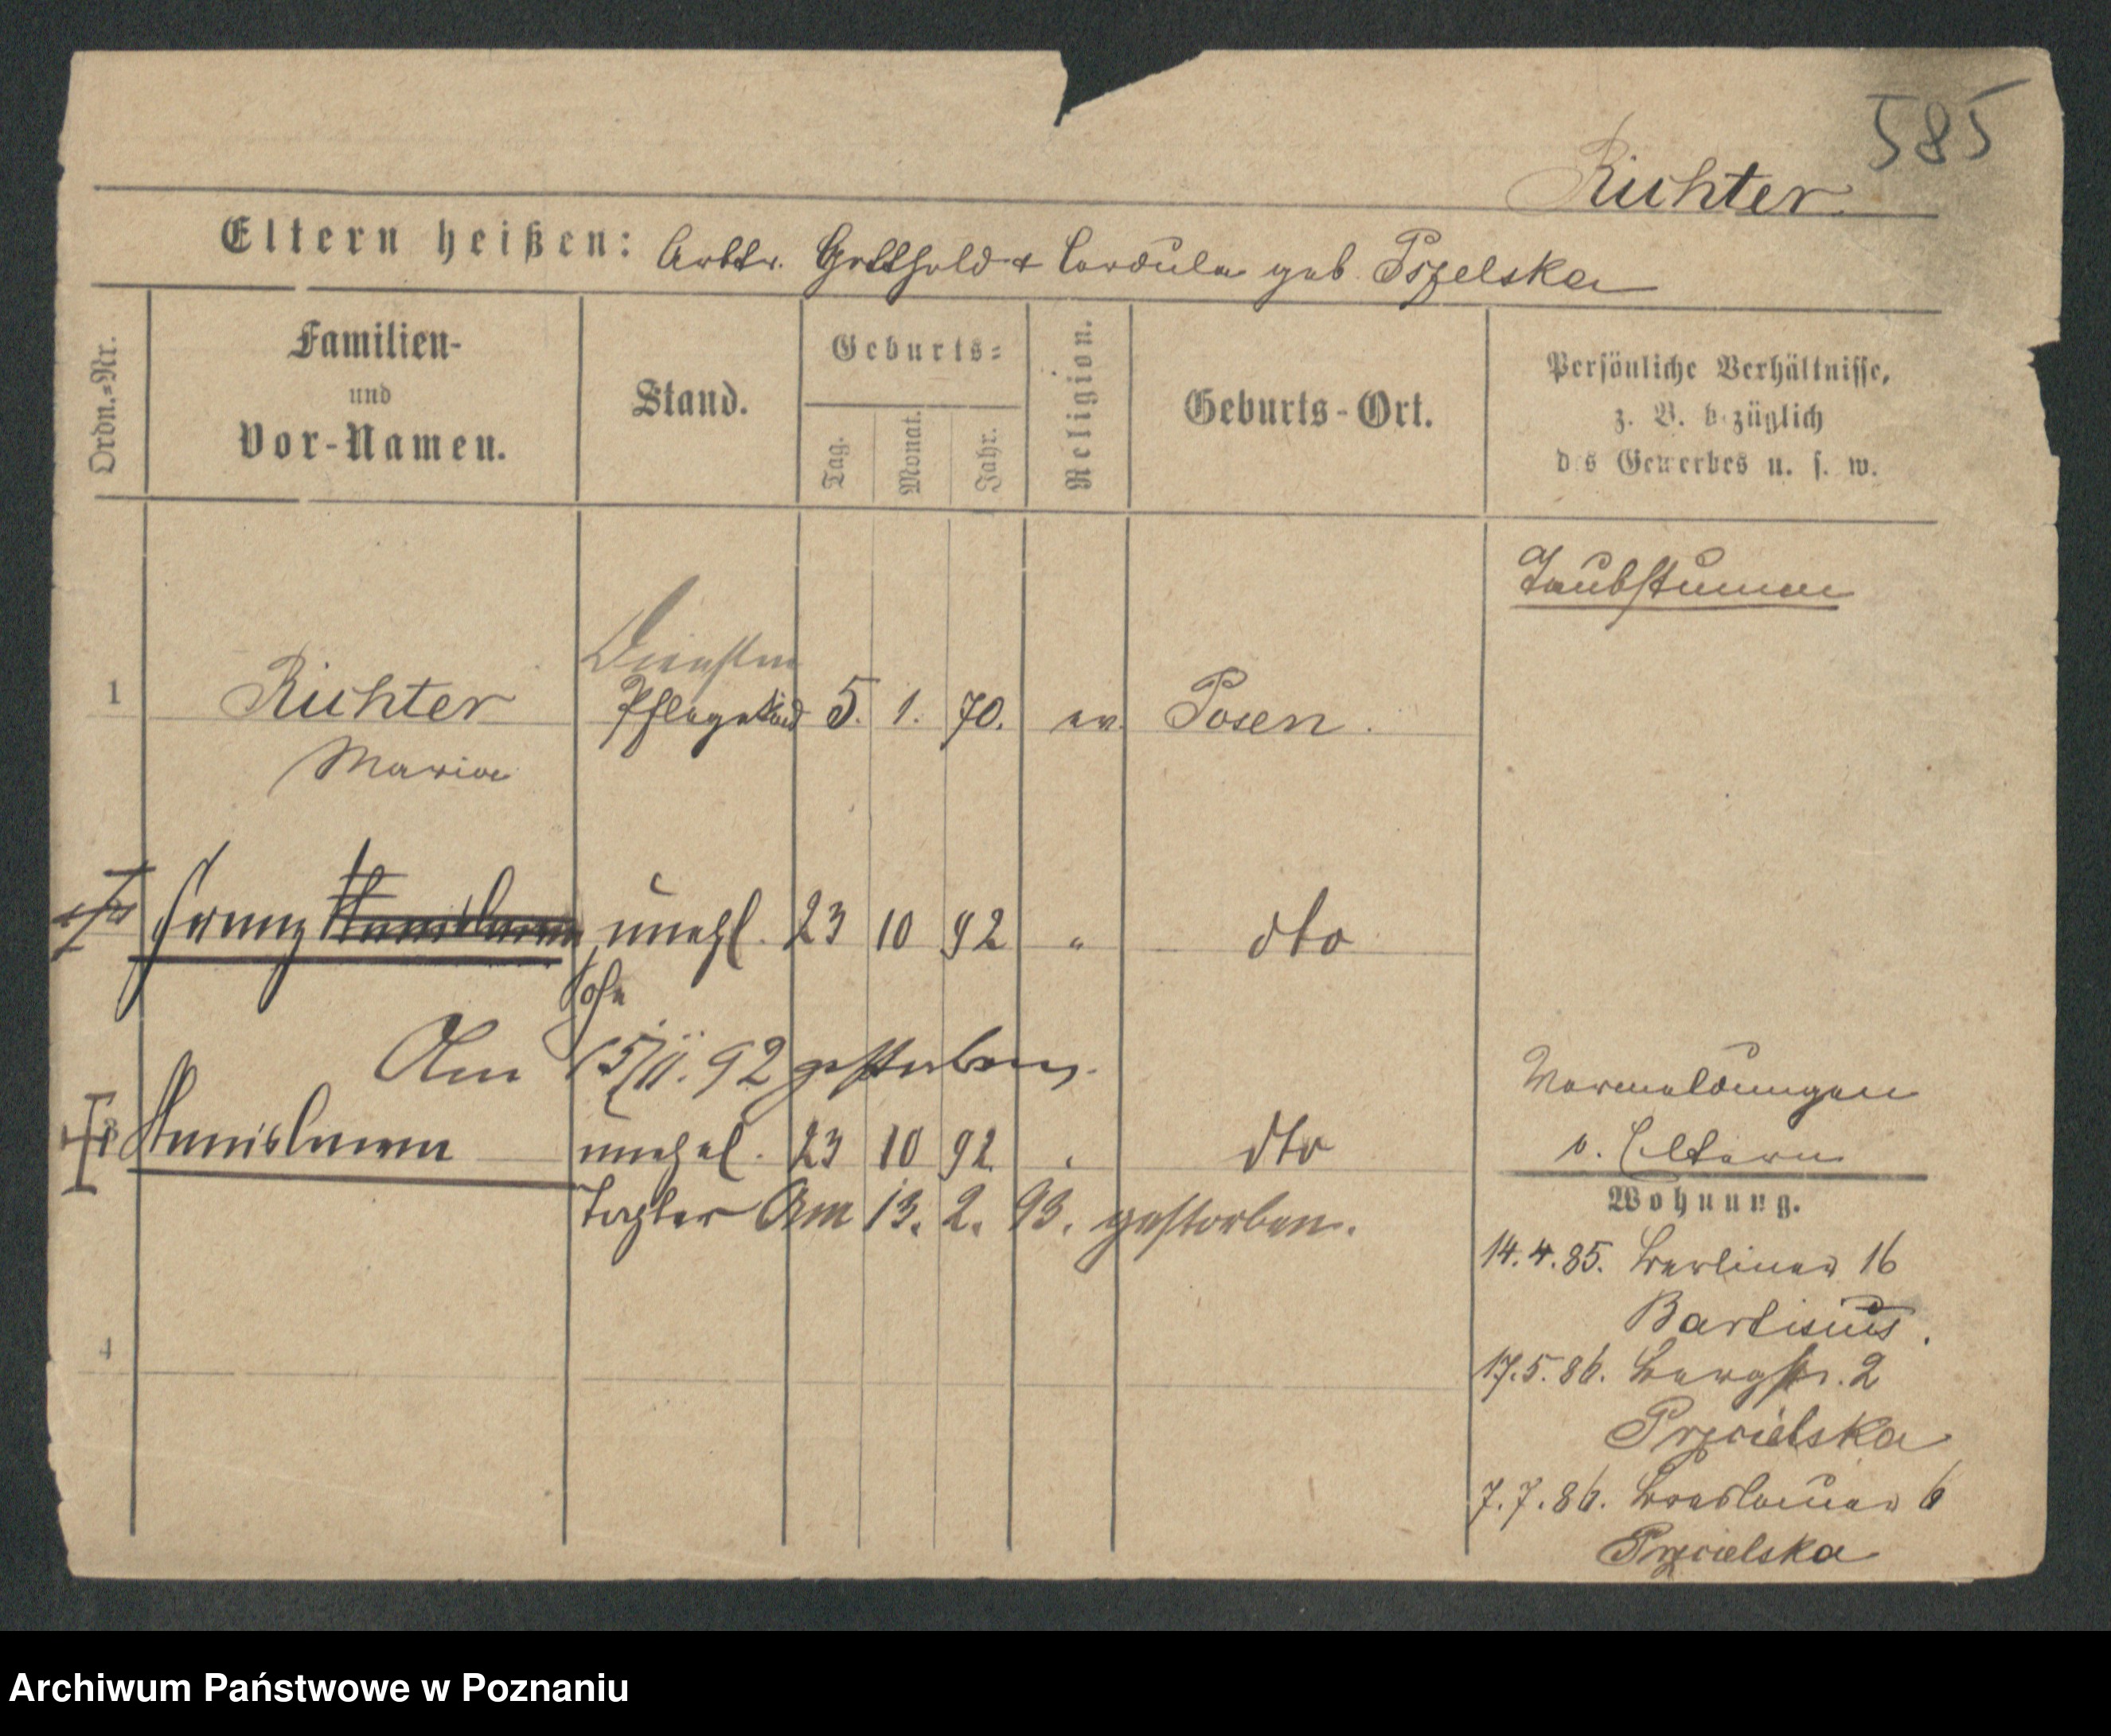 585
Richter
Eltern heißen: Arbtr. Gotthold + Cordula geb. Pszelska
Ordn.=Nr.
Familien-
und
Vor-Namen.
Stand.
Geburts=
Tag.
Monat.
Jahr.
Religion.
Geburts-Ort.
Persönliche Verhältnisse,
z. B. bezüglich
des Gewerbes u. s. w.
Taubstumm
Dienstm
1 Richter Pflegekind 5. 1. 70. ev. Posen.
Maria
Franz unehl. 23 10 92 " dto
Sohn
Am 15/11. 92 gestorben.
Stanislawa unehel. 23 10 92 " dto
Tochter Am 13. 2. 93. gestorben.
4
Vermeldungen
v. Eltern
Wohnung.
14.4.85. Berliner 16
Bartisius.
17.5.86. Bergstr. 2
Przcielska
7.7.86. Breslauer 6
Przcielska
Archiwum Państwowe w Poznaniu